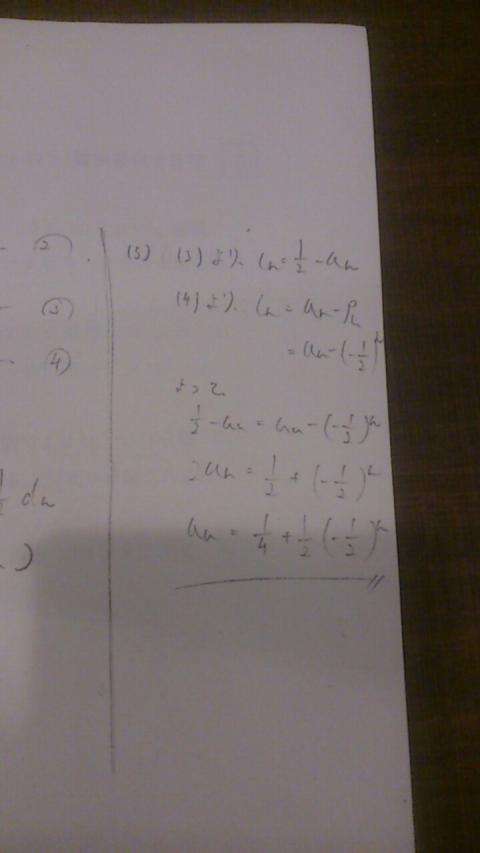 - ②.
- ③
- ④
½ dn
)
(5) (3)より. cn = 1/2 - an
(4)より. cn = an - Pn
= an - (-1/2)^n
よって
1/2 - an = an - (-1/2)^n
2an = 1/2 + (-1/2)^n
an = 1/4 + 1/2 (-1/2)^n